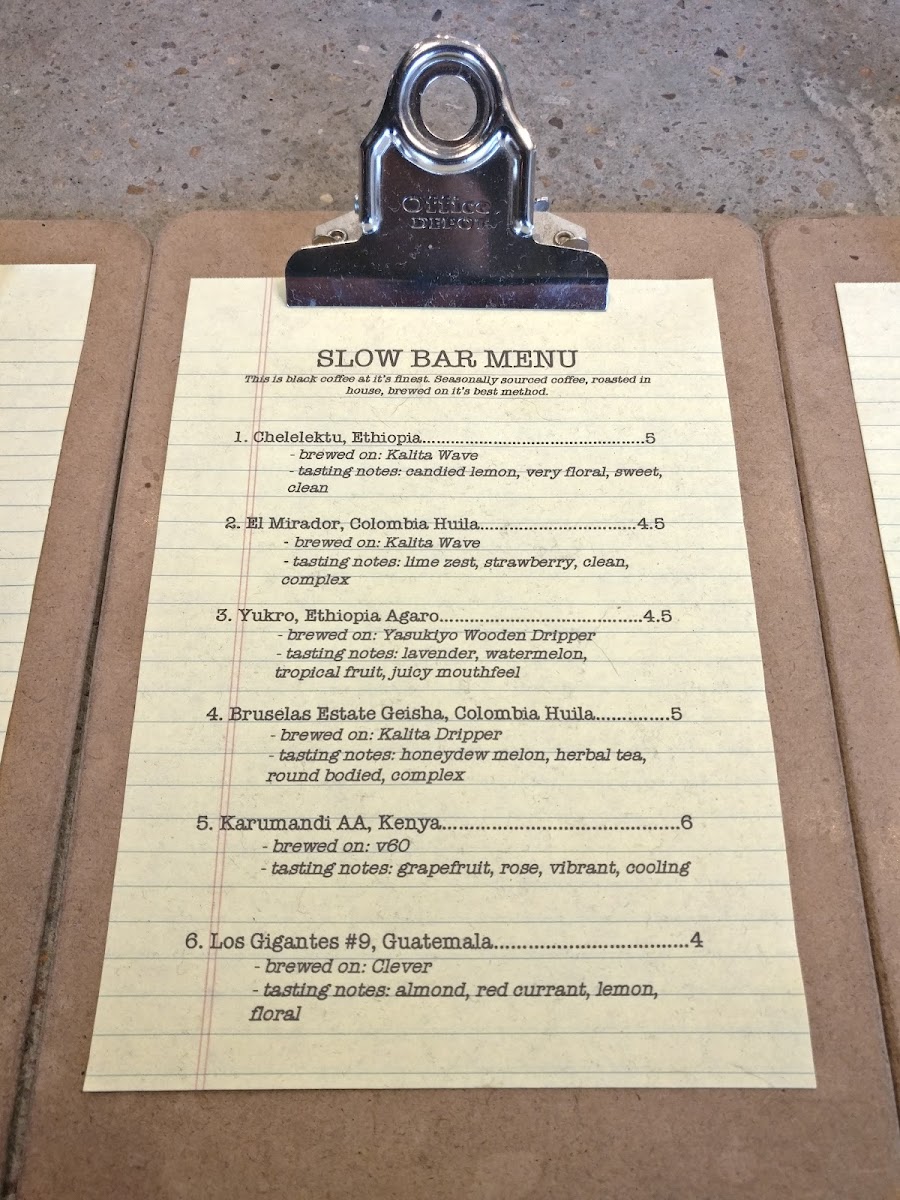 Office
DEPOT
SLOW BAR MENU
This is black coffee at it's finest. Seasonally sourced coffee, roasted in
house, brewed on it's best method.
1. Chelelektu, Ethiopia................................................5
- brewed on: Kalita Wave
- tasting notes: candied lemon, very floral, sweet,
clean
2. El Mirador, Colombia Huila.................................4.5
- brewed on: Kalita Wave
- tasting notes: lime zest, strawberry, clean,
complex
3. Yukro, Ethiopia Agaro...........................................4.5
- brewed on: Yasukiyo Wooden Dripper
- tasting notes: lavender, watermelon,
tropical fruit, juicy mouthfeel
4. Bruselas Estate Geisha, Colombia Huila..............5
- brewed on: Kalita Dripper
- tasting notes: honeydew melon, herbal tea,
round bodied, complex
5. Karumandi AA, Kenya.............................................6
- brewed on: v60
- tasting notes: grapefruit, rose, vibrant, cooling
6. Los Gigantes #9, Guatemala...................................4
- brewed on: Clever
- tasting notes: almond, red currant, lemon,
floral